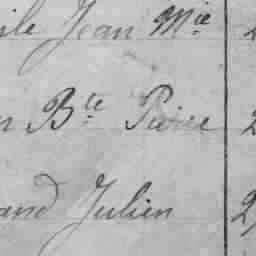 ile Jean Mie 2
n Bte Pierre 2
and Julien 2